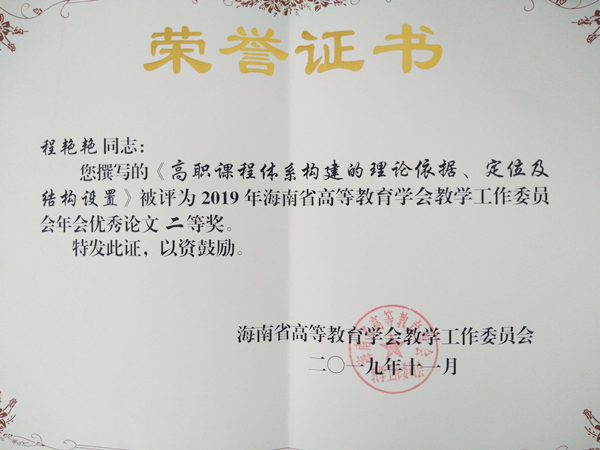 荣誉证书
程艳艳同志：
您撰写的《高职课程体系构建的理论依据、定位及
结构设置》被评为2019年海南省高等教育学会教学工作委员
会年会优秀论文二等奖。
特发此证，以资鼓励。
海南省高等教育学会教学工作委员会
二〇一九年十一月